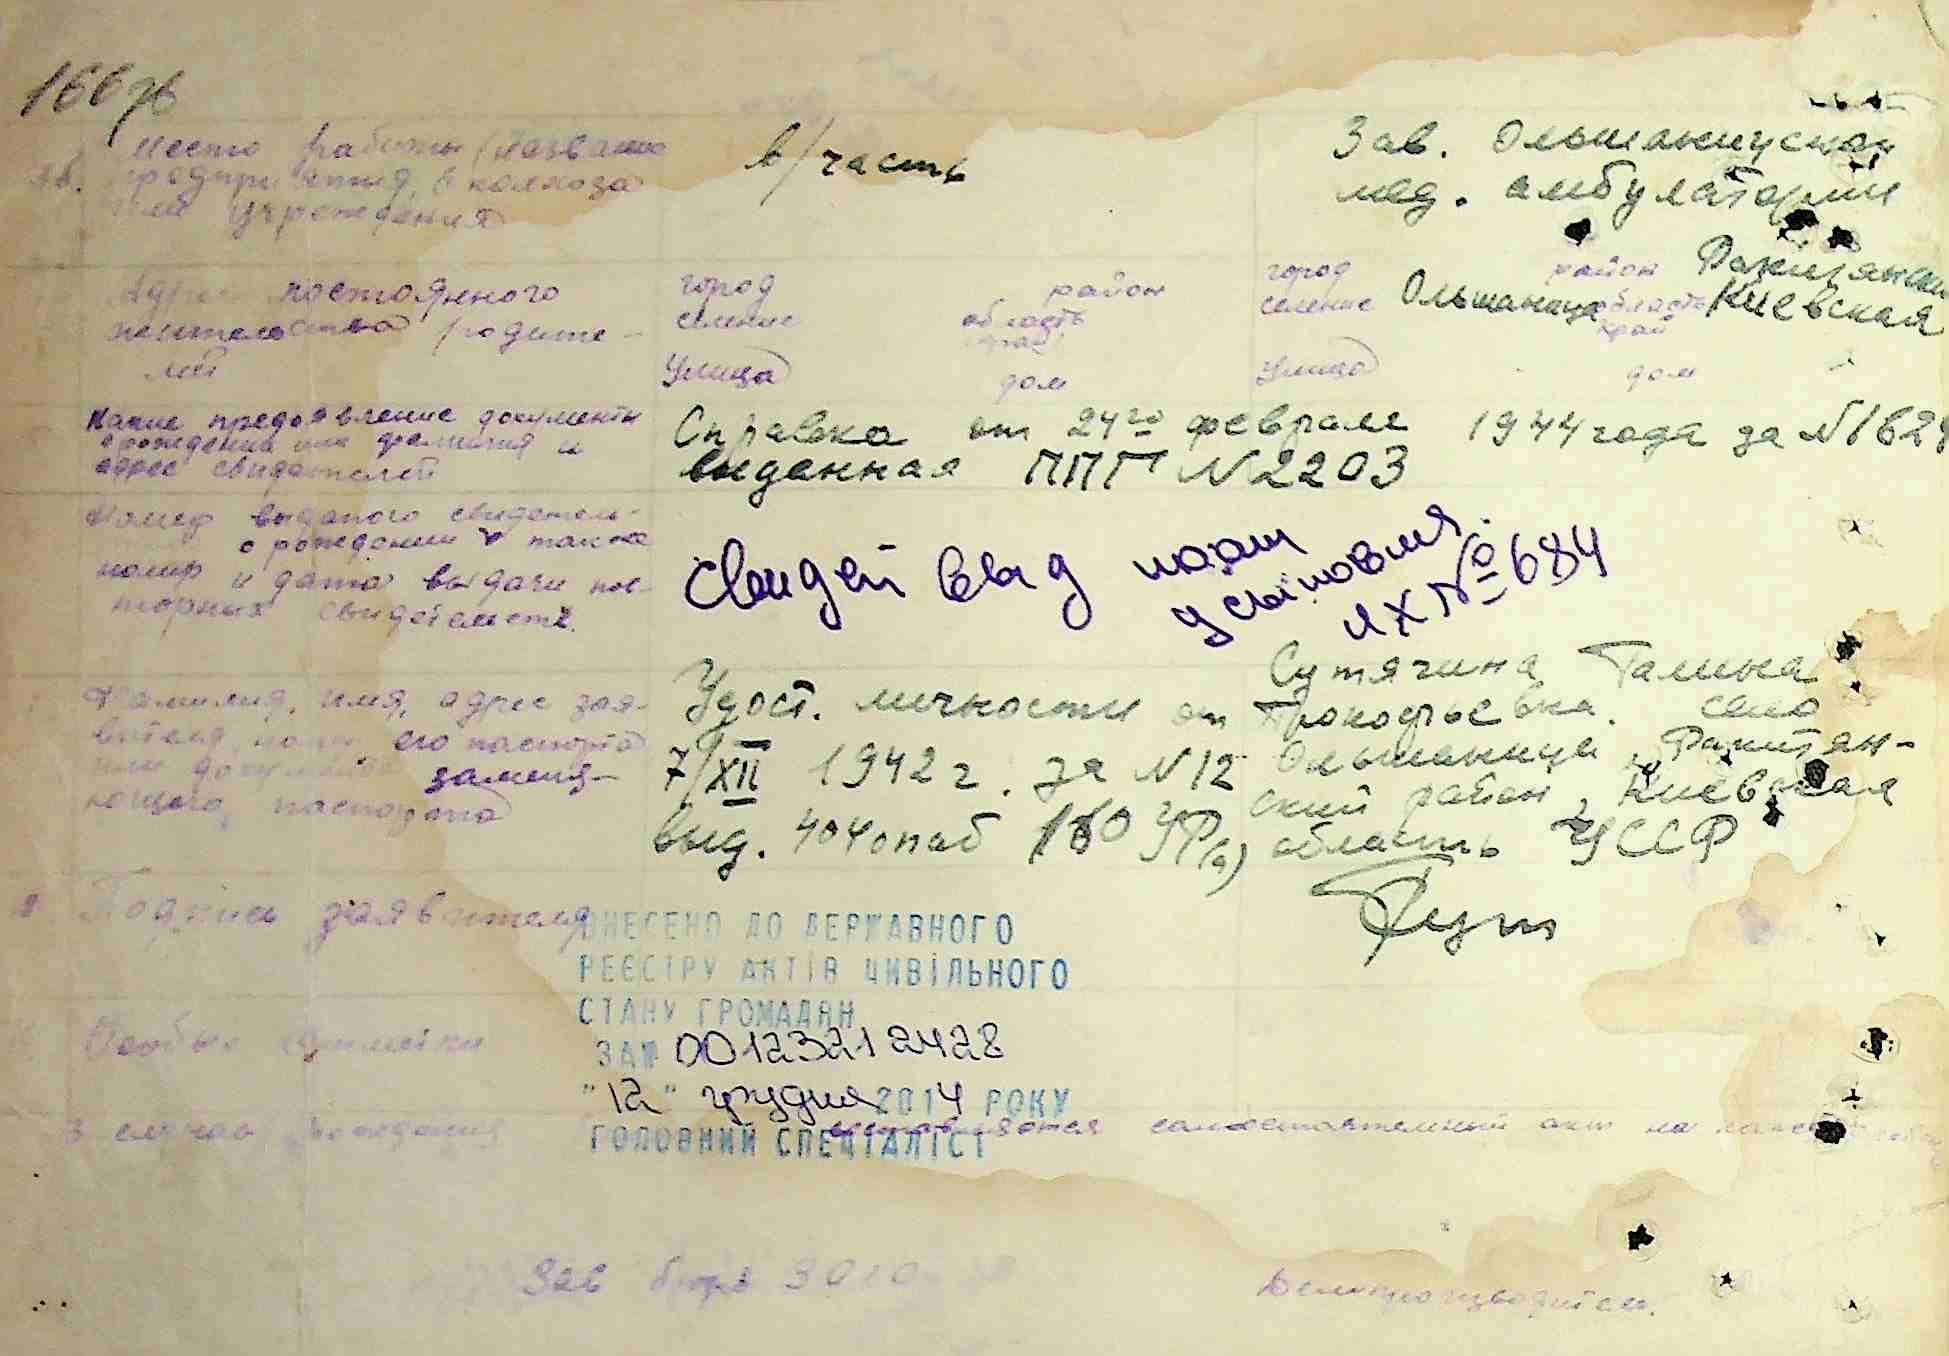 166
Место работы (название
предприятия, колхоза
или учреждения
в/часть
Зав. Ольшаницской
мед. амбулаторией
постоянного
жительства родите-
лей
город район
селение область
край
улица дом
город район Ракитянский
селение Ольшаница область Киевская
край
улица дом
Какие предоявление документы
о рождении или фамилия и
адрес свидетелей
Справка от 24го февраля 1944 года за №
выданная ППГ №2203
Номер выданого свидетель-
о рождении а также
номер и дата выдачи пов-
торных свидетельств.
Свидет выд
№ 684
Фамилия, имя, адрес зая-
вителя, его паспорта
или документа заменя-
ющего, паспорта
Удост. личности от
7/XII 1942 г. за №12
выд. 404 опаб УР
Сутягина Галина
Прокофьевна. село
Ольшаница, Ракитян-
ский район, Киевская
область УССР
Подпись заявителя
ВНЕСЕНО ДО ДЕРЖАВНОГО
РЕЄСТРУ АКТІВ ЦИВІЛЬНОГО
СТАНУ ГРОМАДЯН
ЗА № 00123212428
"12" грудня 2014 РОКУ
ГОЛОВНИЙ СПЕЦІАЛІСТ
Особые отметки
В случае рождения составляется самостоятельный акт на
Зав бюро ЗАГС
Делопроизводитель.